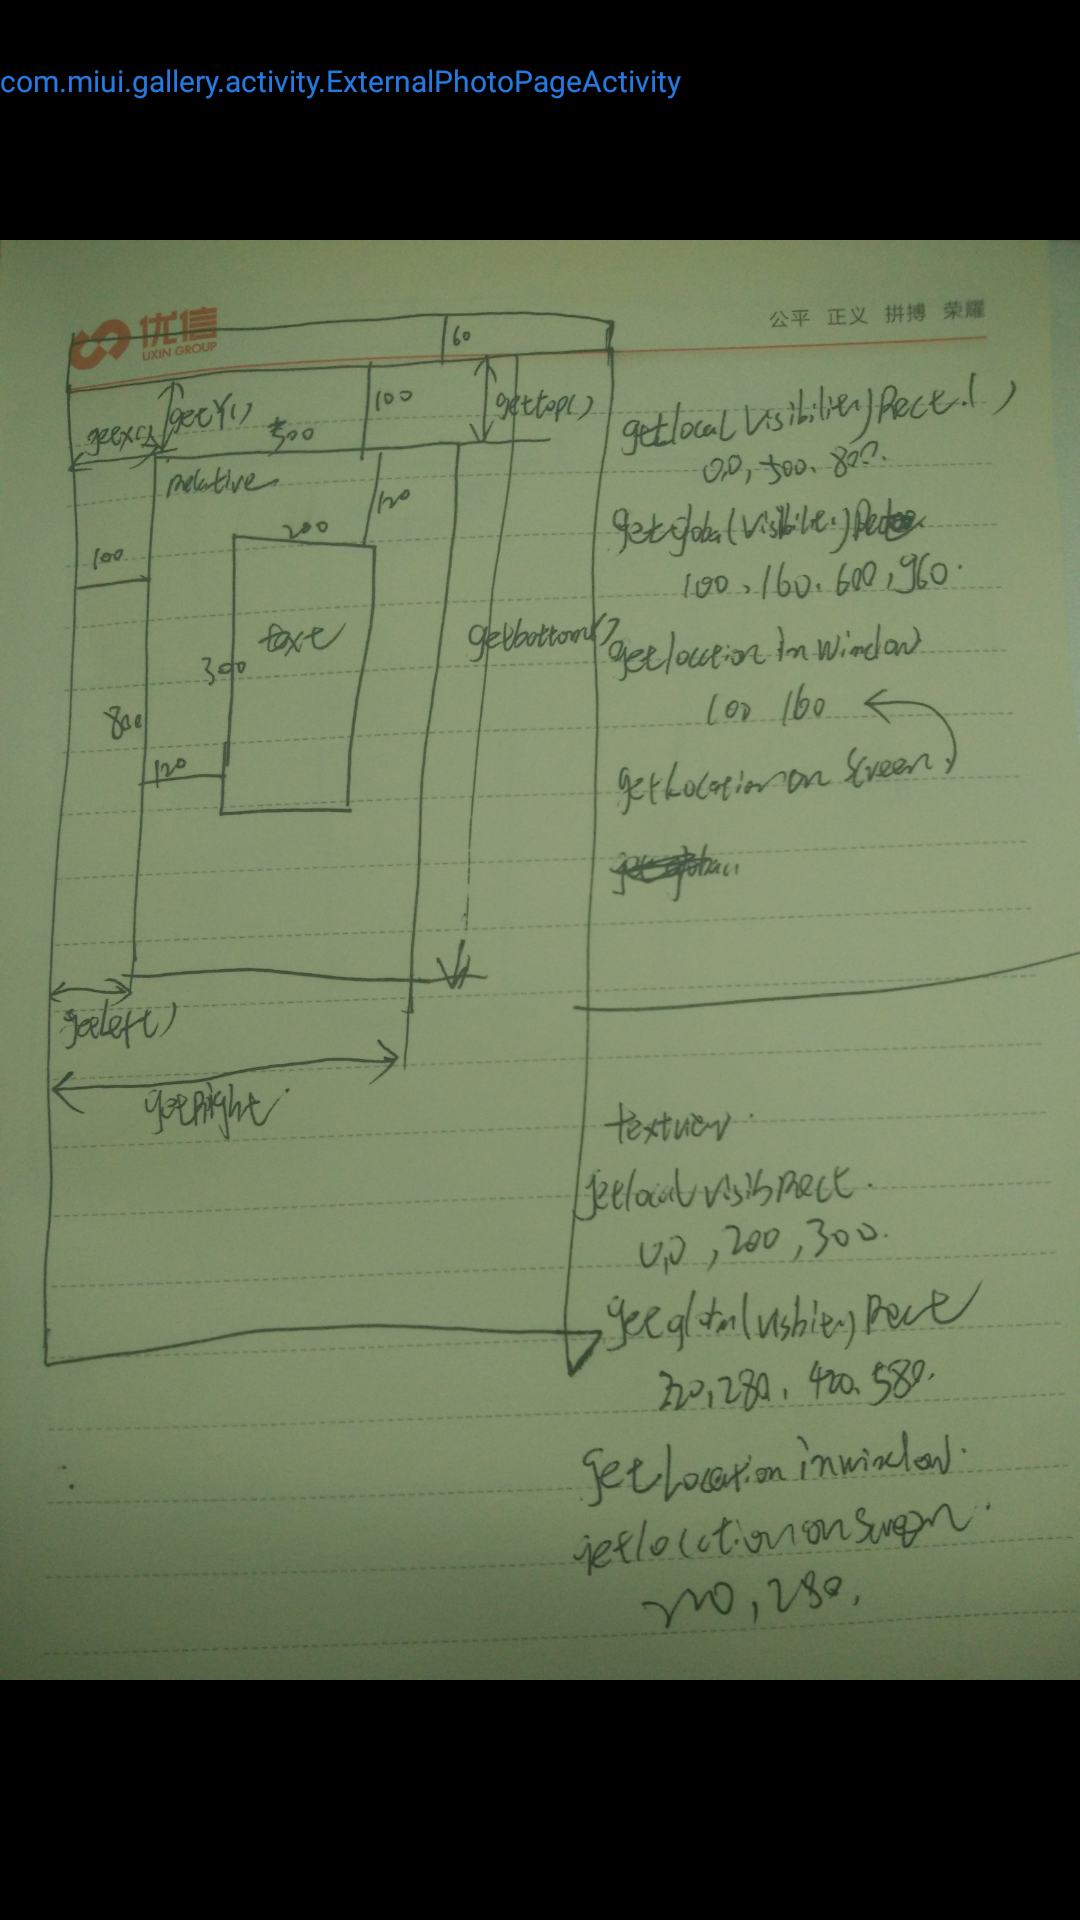 com.miui.gallery.activity.ExternalPhotoPageActivity
优信
UXIN GROUP
公平 正义 拼搏 荣耀
60
getX()
getY()
500
100
getTop()
relative
120
200
100
text
300
800
120
getbottom()
getLeft()
getRight
getlocalVisibility)Rect.()
0,0, 500. 800.
100、160、600,960.
getlocationinWindow
100 160
getLocationonScreen
textview.
getlocalVisibRect.
0,0,200,300.
220,280,420,580.
getLocationinwindow.
getlocationonScreen.
220,280,